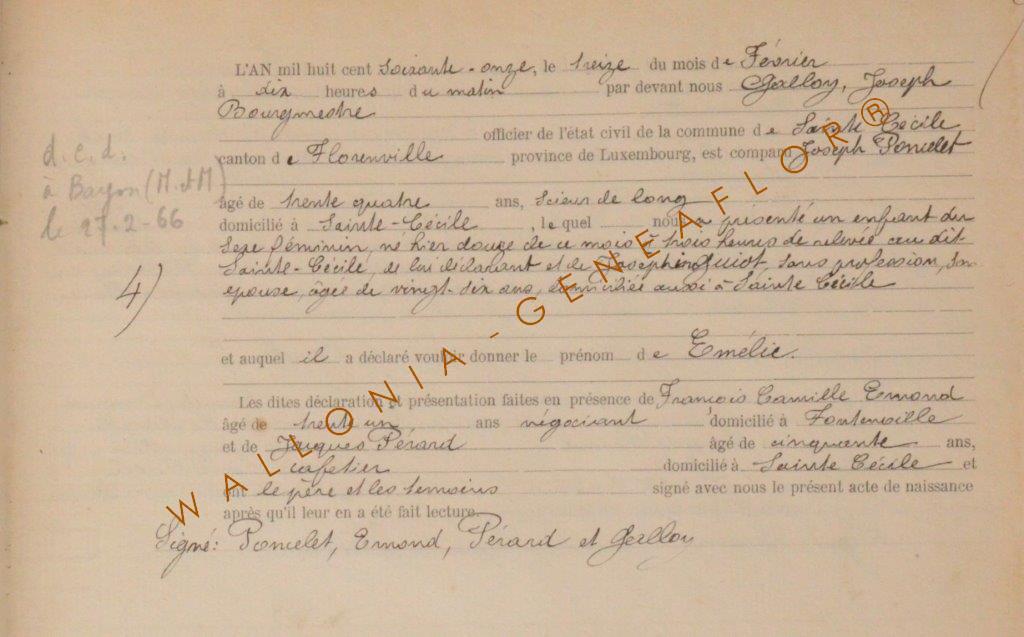 L'AN mil huit cent soixante-onze, le treize du mois de Février
à dix heures du matin par devant nous Galloy, Joseph
Bourgmestre
officier de l'état civil de la commune de Sainte Cécile
canton de Florenville province de Luxembourg, est comparu Joseph Poncelet
âgé de trente quatre ans, Scieur de long
domicilié à Sainte-Cécile, le quel nous a présenté un enfant du
sexe féminin, né hier douze de ce mois à trois heures de relevée au dit
Sainte-Cécile, de lui déclarant et de Josephine Guiot, sans profession, son
épouse, âgée de vingt-six ans, domiciliée aussi à Sainte Cécile
et auquel il a déclaré vouloir donner le prénom de Emélie.
Les dites déclaration et présentation faites en présence de François Camille Emond
âgé de trente un ans négociant domicilié à Fontenoille
et de Jacques Pérard âgé de cinquante ans,
cafetier domicilié à Sainte Cécile et
ont le père et les témoins signé avec nous le présent acte de naissance
après qu'il leur en a été fait lecture.
Signé: Poncelet, Emond, Pérard et Galloy
d.c.d.
à Bayon (M. et M)
le 27-2-66
4)
WALLONIA-GENEAFLOR®